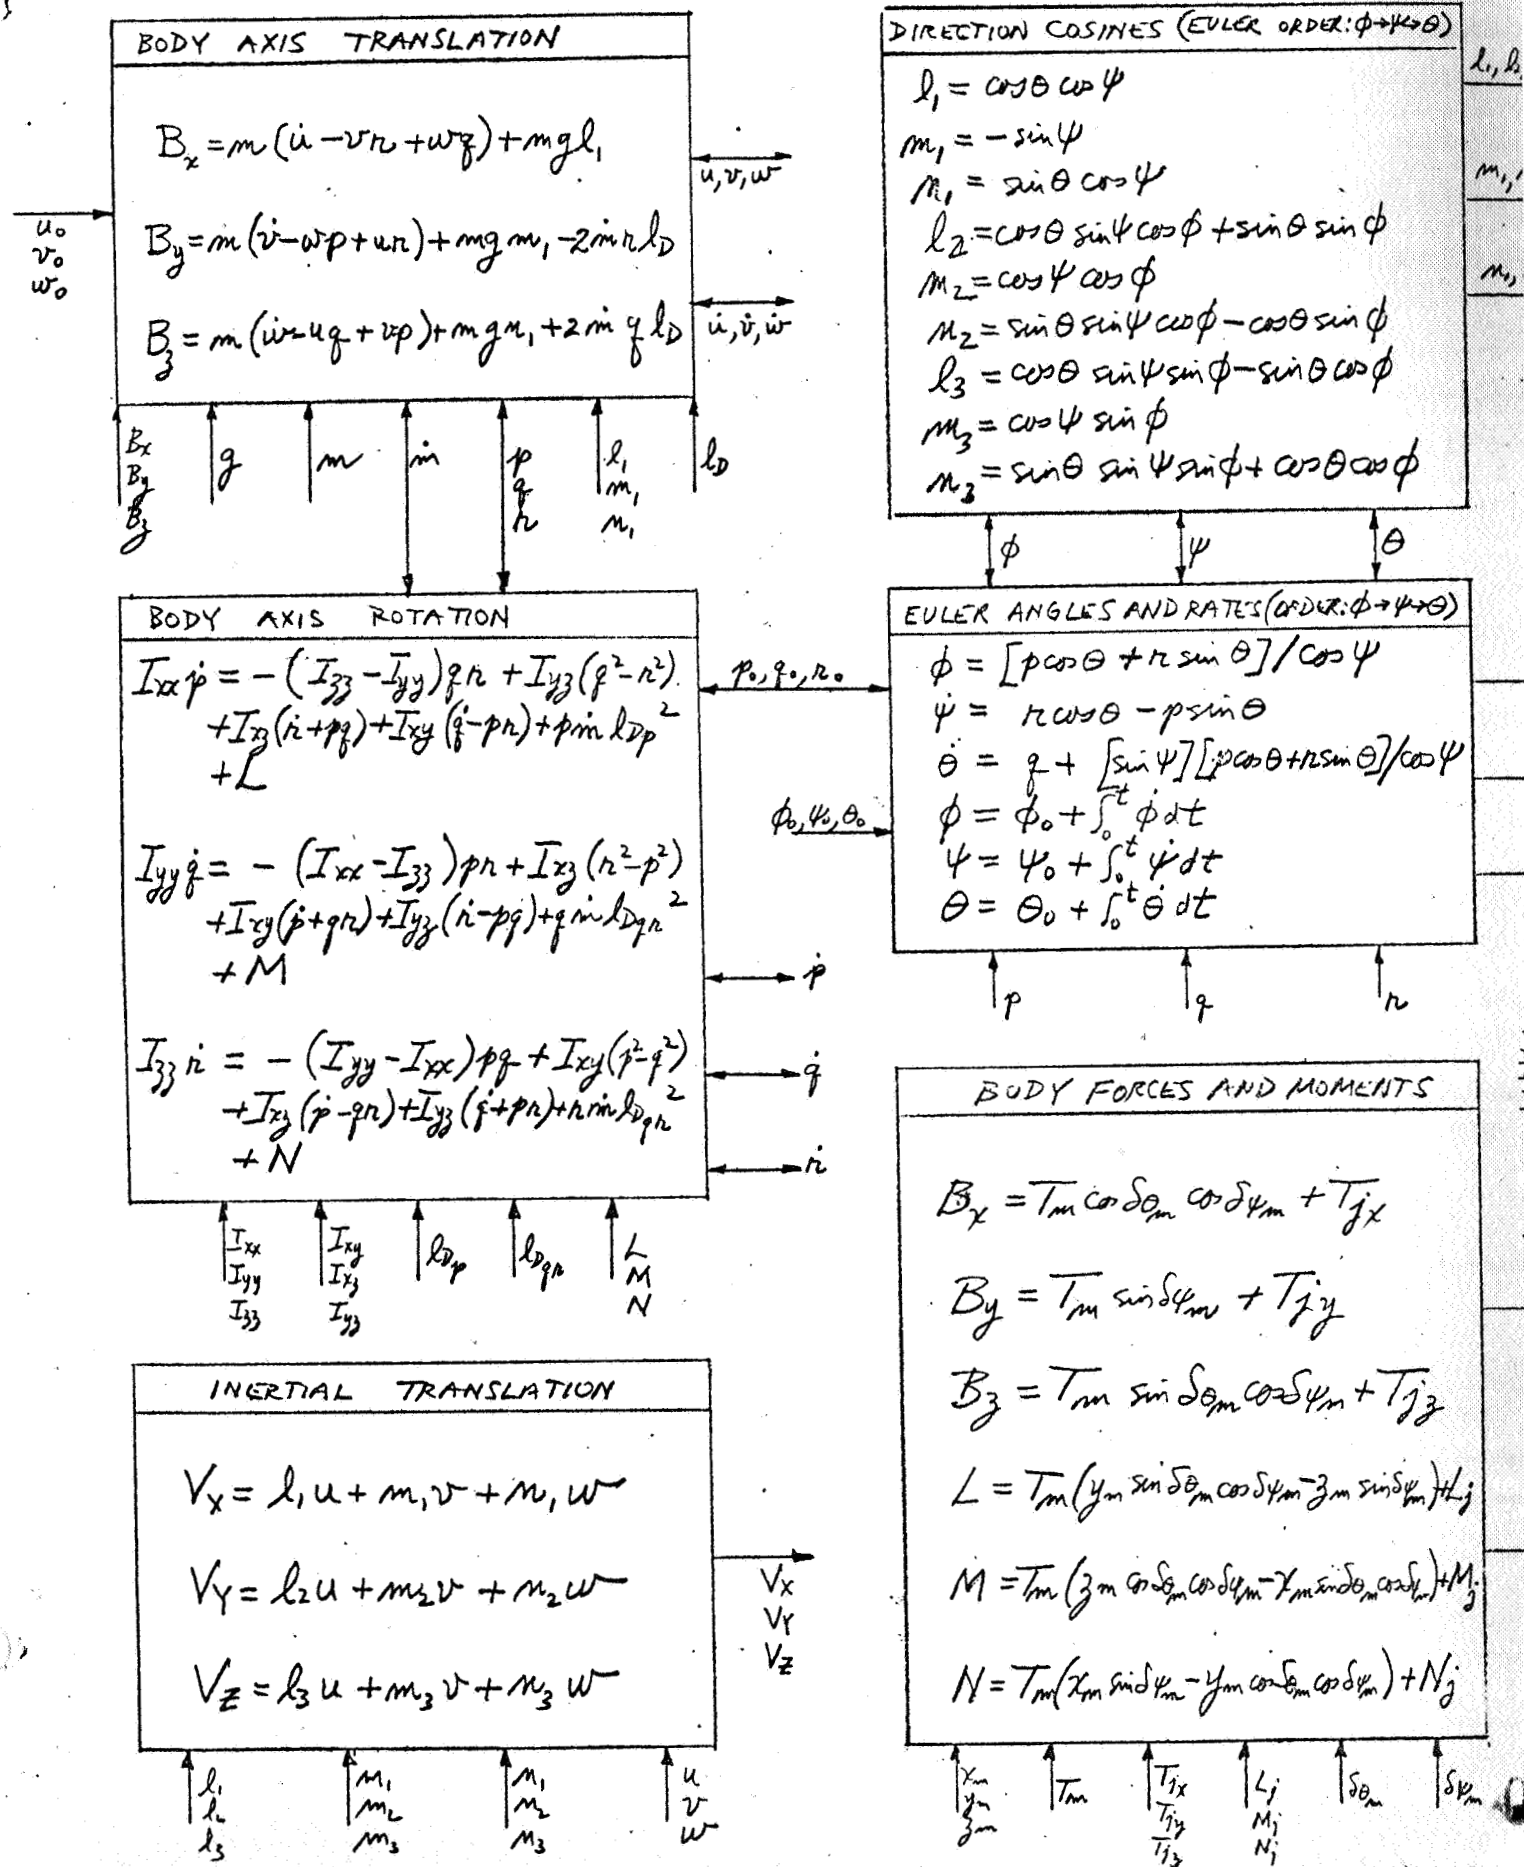 BODY AXIS TRANSLATION
Bx = m (u̇ - vr + wq) + mgl₁
By = m (v̇ - wp + ur) + mg m₁ - 2ṁ r lD
Bz = m (ẇ - uq + vp) + mg n₁ + 2ṁ q lD
u₀
v₀
w₀
u, v, w
u̇, v̇, ẇ
Bx
By
Bz
g
m
ṁ
p
q
r
l₁
m₁
n₁
lD
DIRECTION COSINES (EULER ORDER: ϕ→ψ→θ)
l₁ = cosθ cosψ
m₁ = -sinψ
n₁ = sinθ cosψ
l₂ = cosθ sinψ cosϕ + sinθ sinϕ
m₂ = cosψ cosϕ
n₂ = sinθ sinψ cosϕ - cosθ sinϕ
l₃ = cosθ sinψ sinϕ - sinθ cosϕ
m₃ = cosψ sinϕ
n₃ = sinθ sinψ sinϕ + cosθ cosϕ
l₁, l₂
m₁,
n₁,
ϕ
ψ
θ
BODY AXIS ROTATION
Ixx ṗ = - (Izz - Iyy) qr + Iyz (q² - r²)
+ Ixz (ṙ + pq) + Ixy (q̇ - pr) + pṁ lDp²
+ L
Iyy q̇ = - (Ixx - Izz) pr + Ixz (r² - p²)
+ Ixy (ṗ + qr) + Iyz (ṙ - pq) + qṁ lDqr²
+ M
Izz ṙ = - (Iyy - Ixx) pq + Ixy (p² - q²)
+ Ixz (ṗ - qr) + Iyz (q̇ + pr) + rṁ lDqr²
+ N
p₀, q₀, r₀
ϕ₀, ψ₀, θ₀
ṗ
q̇
ṙ
Ixx
Iyy
Izz
Ixy
Ixz
Iyz
lDp
lDqr
L
M
N
EULER ANGLES AND RATES (ORDER: ϕ→ψ→θ)
ϕ̇ = [p cosθ + r sinθ] / cosψ
ψ̇ = r cosθ - p sinθ
θ̇ = q + [sinψ] [p cosθ + r sinθ] / cosψ
ϕ = ϕ₀ + ∫₀ᵗ ϕ̇ dt
ψ = ψ₀ + ∫₀ᵗ ψ̇ dt
θ = θ₀ + ∫₀ᵗ θ̇ dt
p
q
r
INERTIAL TRANSLATION
VX = l₁u + m₁v + n₁w
VY = l₂u + m₂v + n₂w
VZ = l₃u + m₃v + n₃w
VX
VY
VZ
l₁
l₂
l₃
m₁
m₂
m₃
n₁
n₂
n₃
u
v
w
BODY FORCES AND MOMENTS
Bx = Tm cos δθm cos δψm + Tjx
By = Tm sin δψm + Tjy
Bz = Tm sin δθm cos δψm + Tjz
L = Tm (ym sin δθm cos δψm - zm sin δψm) + Lj
M = Tm (zm cos δθm cos δψm - xm sin δθm cos δψm) + Mj
N = Tm (xm sin δψm - ym cos δθm cos δψm) + Nj
xm
ym
zm
Tm
Tjx
Tjy
Tjz
Lj
Mj
Nj
δθm
δψm